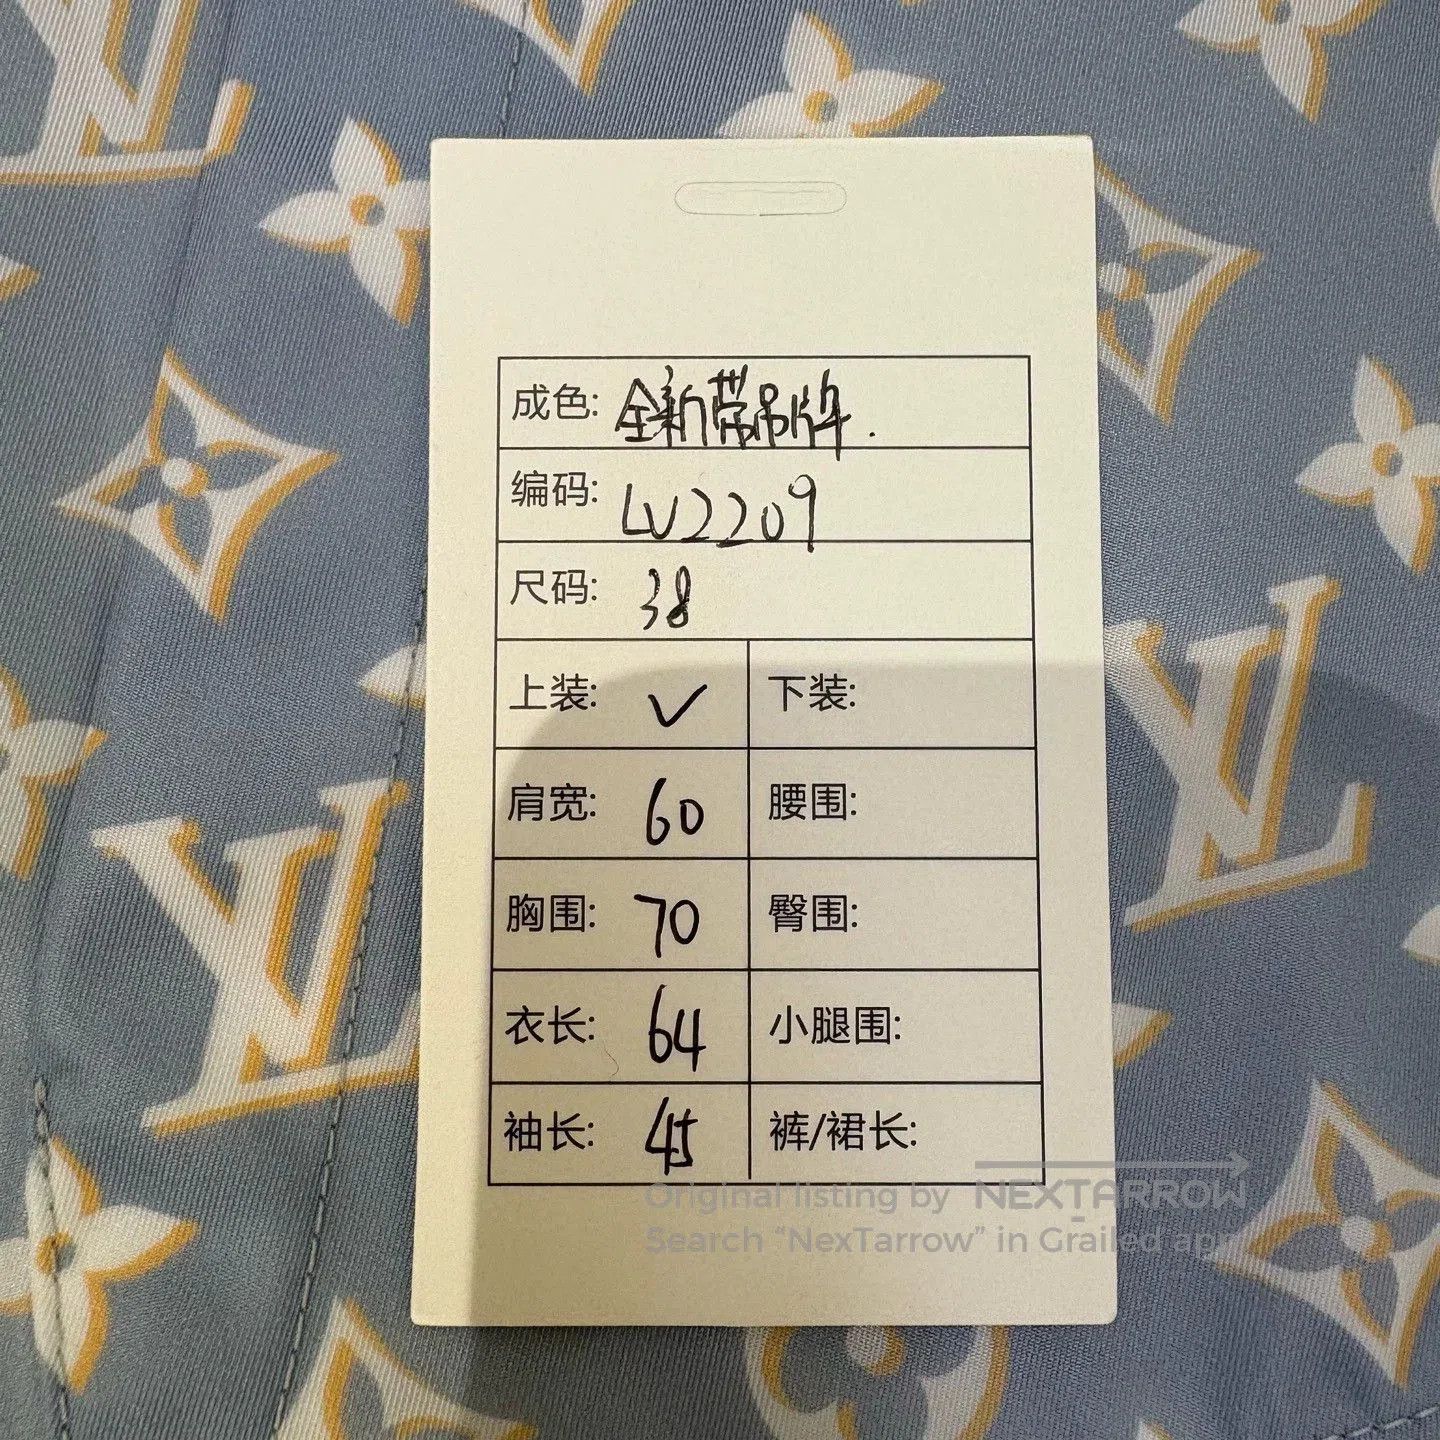 成色: 全新带吊牌.
编码: LV2209
尺码: 38
上装: ✓ 下装:
肩宽: 60 腰围:
胸围: 70 臀围:
衣长: 64 小腿围:
袖长: 45 裤/裙长:
Original listing by NEXTARROW
Search “NexTarrow” in Grailed app